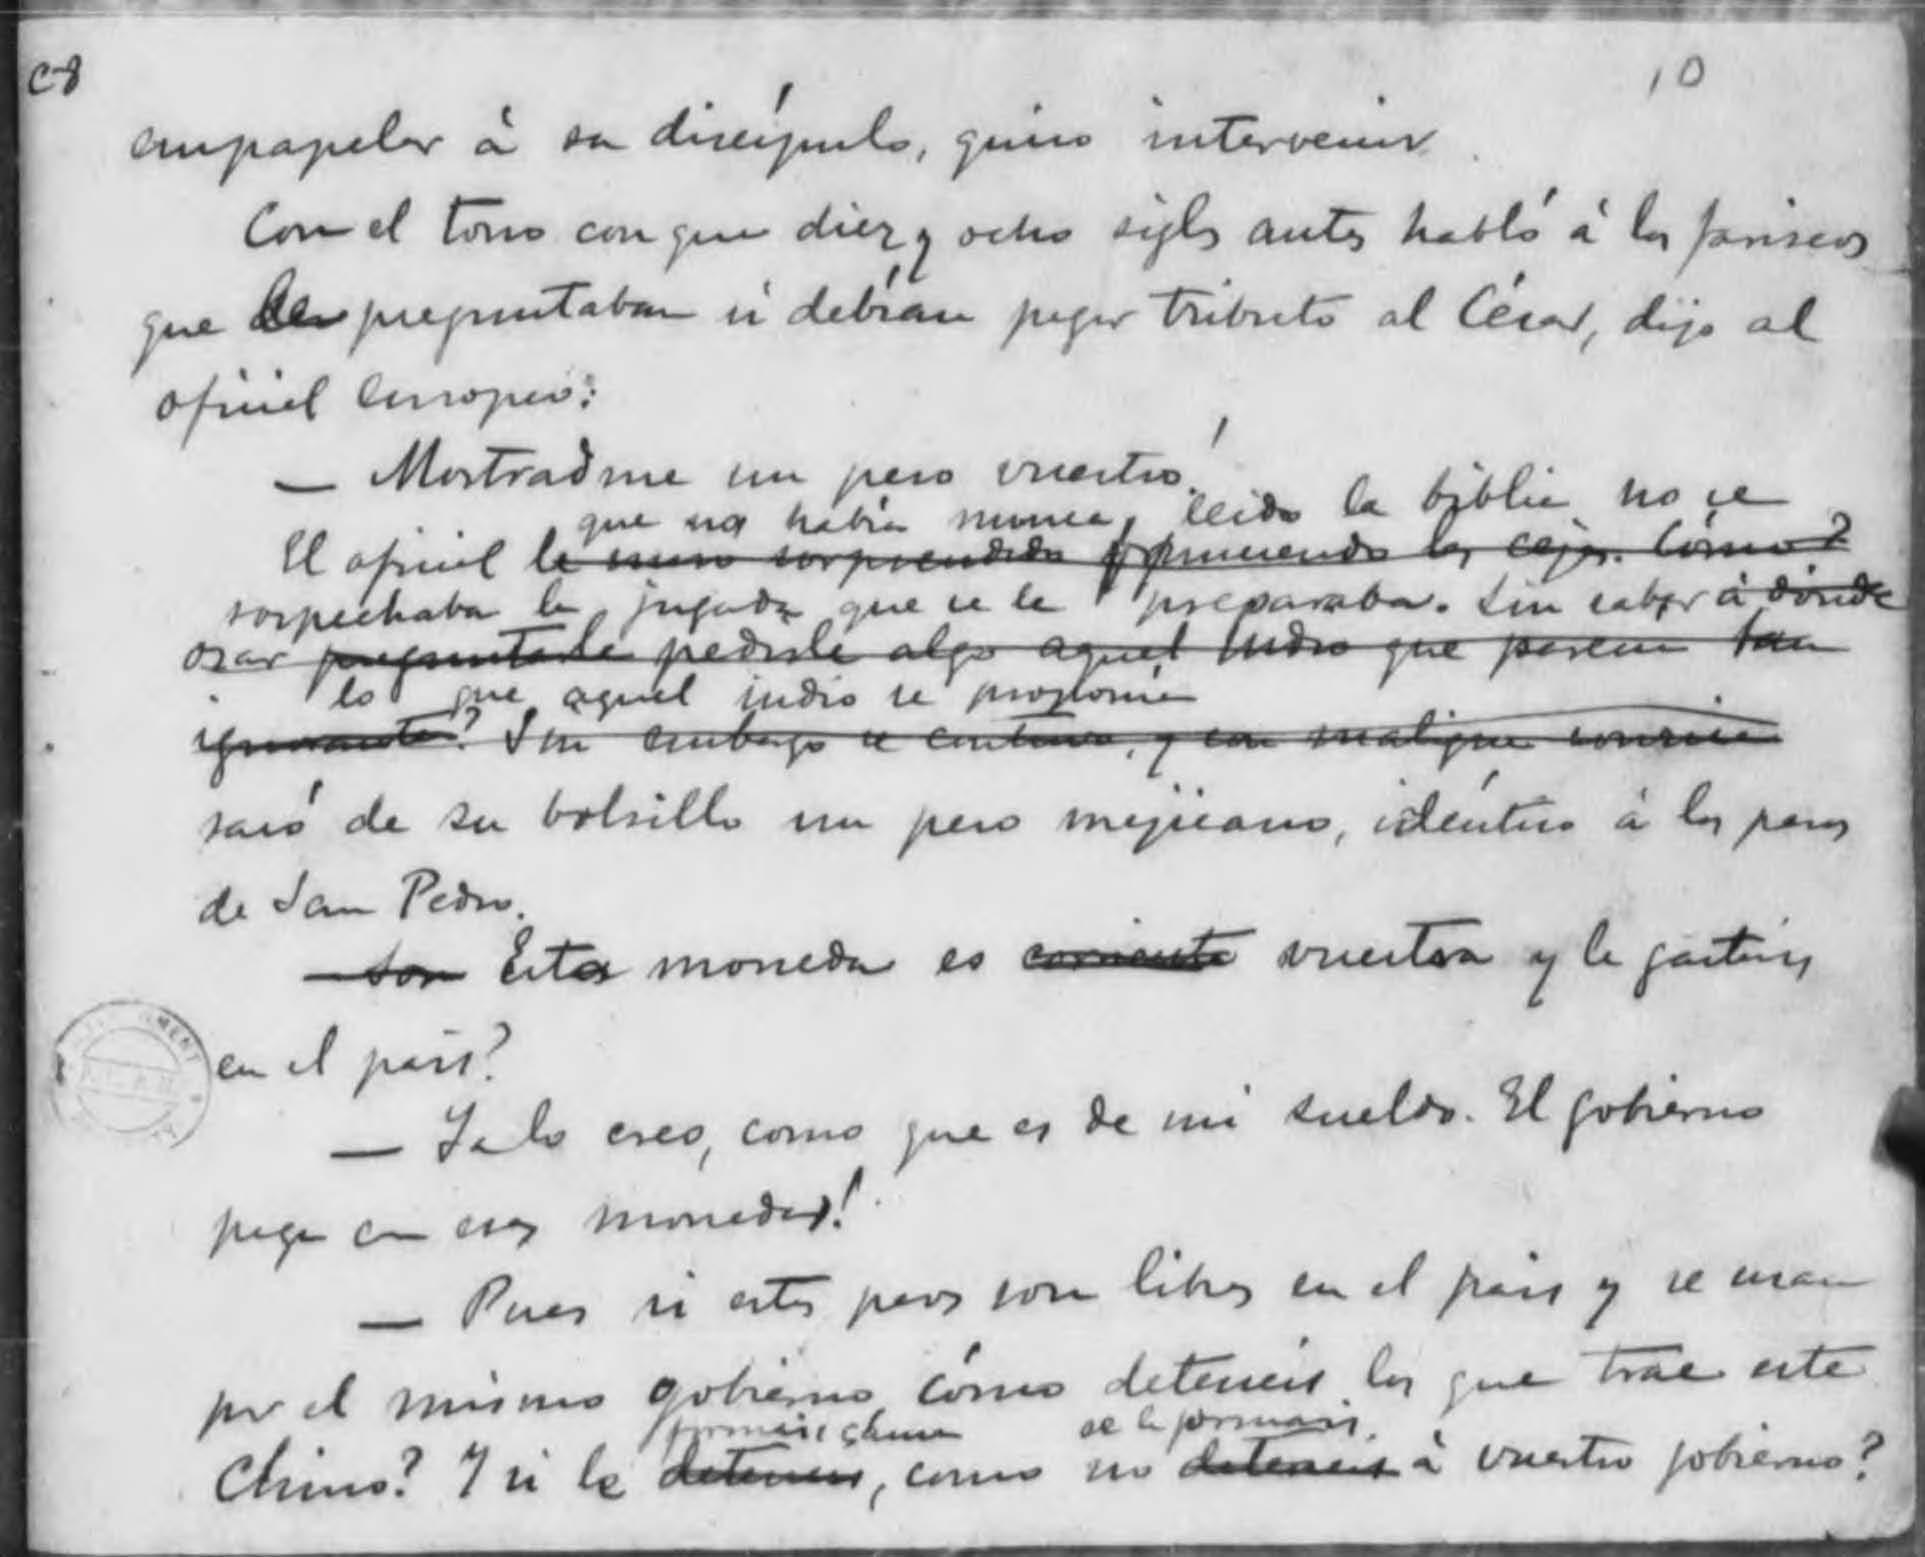 C-8
10
empapelar á su discípulo, quiso intervenir.
Con el tono con que diez y ocho siglos antes habló á los fariseos
que le preguntaban si debían pagar tributo al César, dijo al
oficial europeo:
— Mostradme un peso vuestro!
que no había nunca leido la biblia no se
El oficial le miro sorprendido frunciendo las cejas. Cómo?
sospechaba la jugada que se le preparaba. Sin saber á dónde
osar preguntarle pedirle algo aquel indio que parecia tan
lo que aquel indio se proponia
ignorante? Sin embargo se contuvo, y con maligna sonrisa
sacó de su bolsillo un peso mejicano, idéntico á los pesos
de San Pedro.
— Son Esta moneda es corriente vuestra y la gastais
en el pais?
— Ya lo creo, como que es de mi sueldo. El gobierno
paga en esas monedas!
— Pues si estos pesos son libres en el pais y se usan
por el mismo gobierno cómo deteneis los que trae este
se le formais
Chino? Y si le deteneis, como no deteneis á vuestro gobierno?